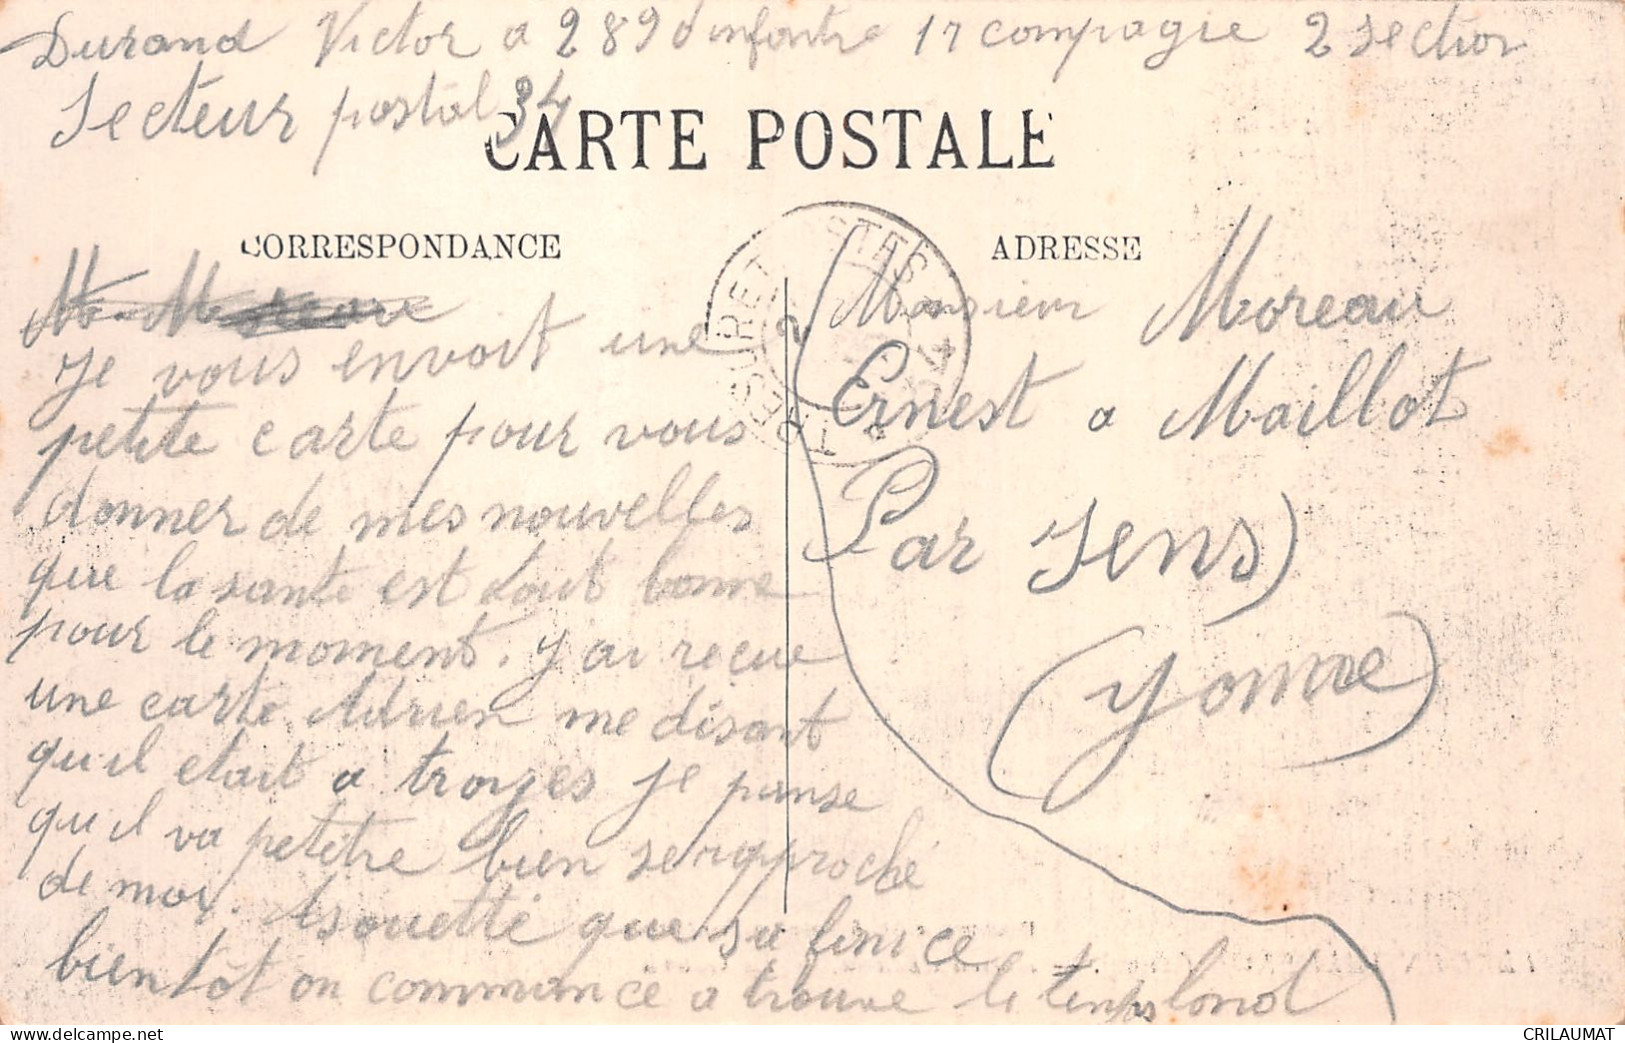 Durand Victor a 289 dinfantre 17 compagie 2 section
Secteur postal 34
CARTE POSTALE
CORRESPONDANCE
ADRESSE
Je vous envoit une
petite carte pour vous
donner de mes nouvelles
que la sante est tout bonne
pour le moment. y ai recue
une carte Adrien me disant
quil etait a troyes je panse
quil va petetre bien serapproché
de moi. Asouetté que sa finice
bientôt on commance a trouve le temps lond
Monsieur Moreau
Ernest a Maillot
Par Sens
(Yonne)
TRESOR ET POSTES
CRILAUMAT